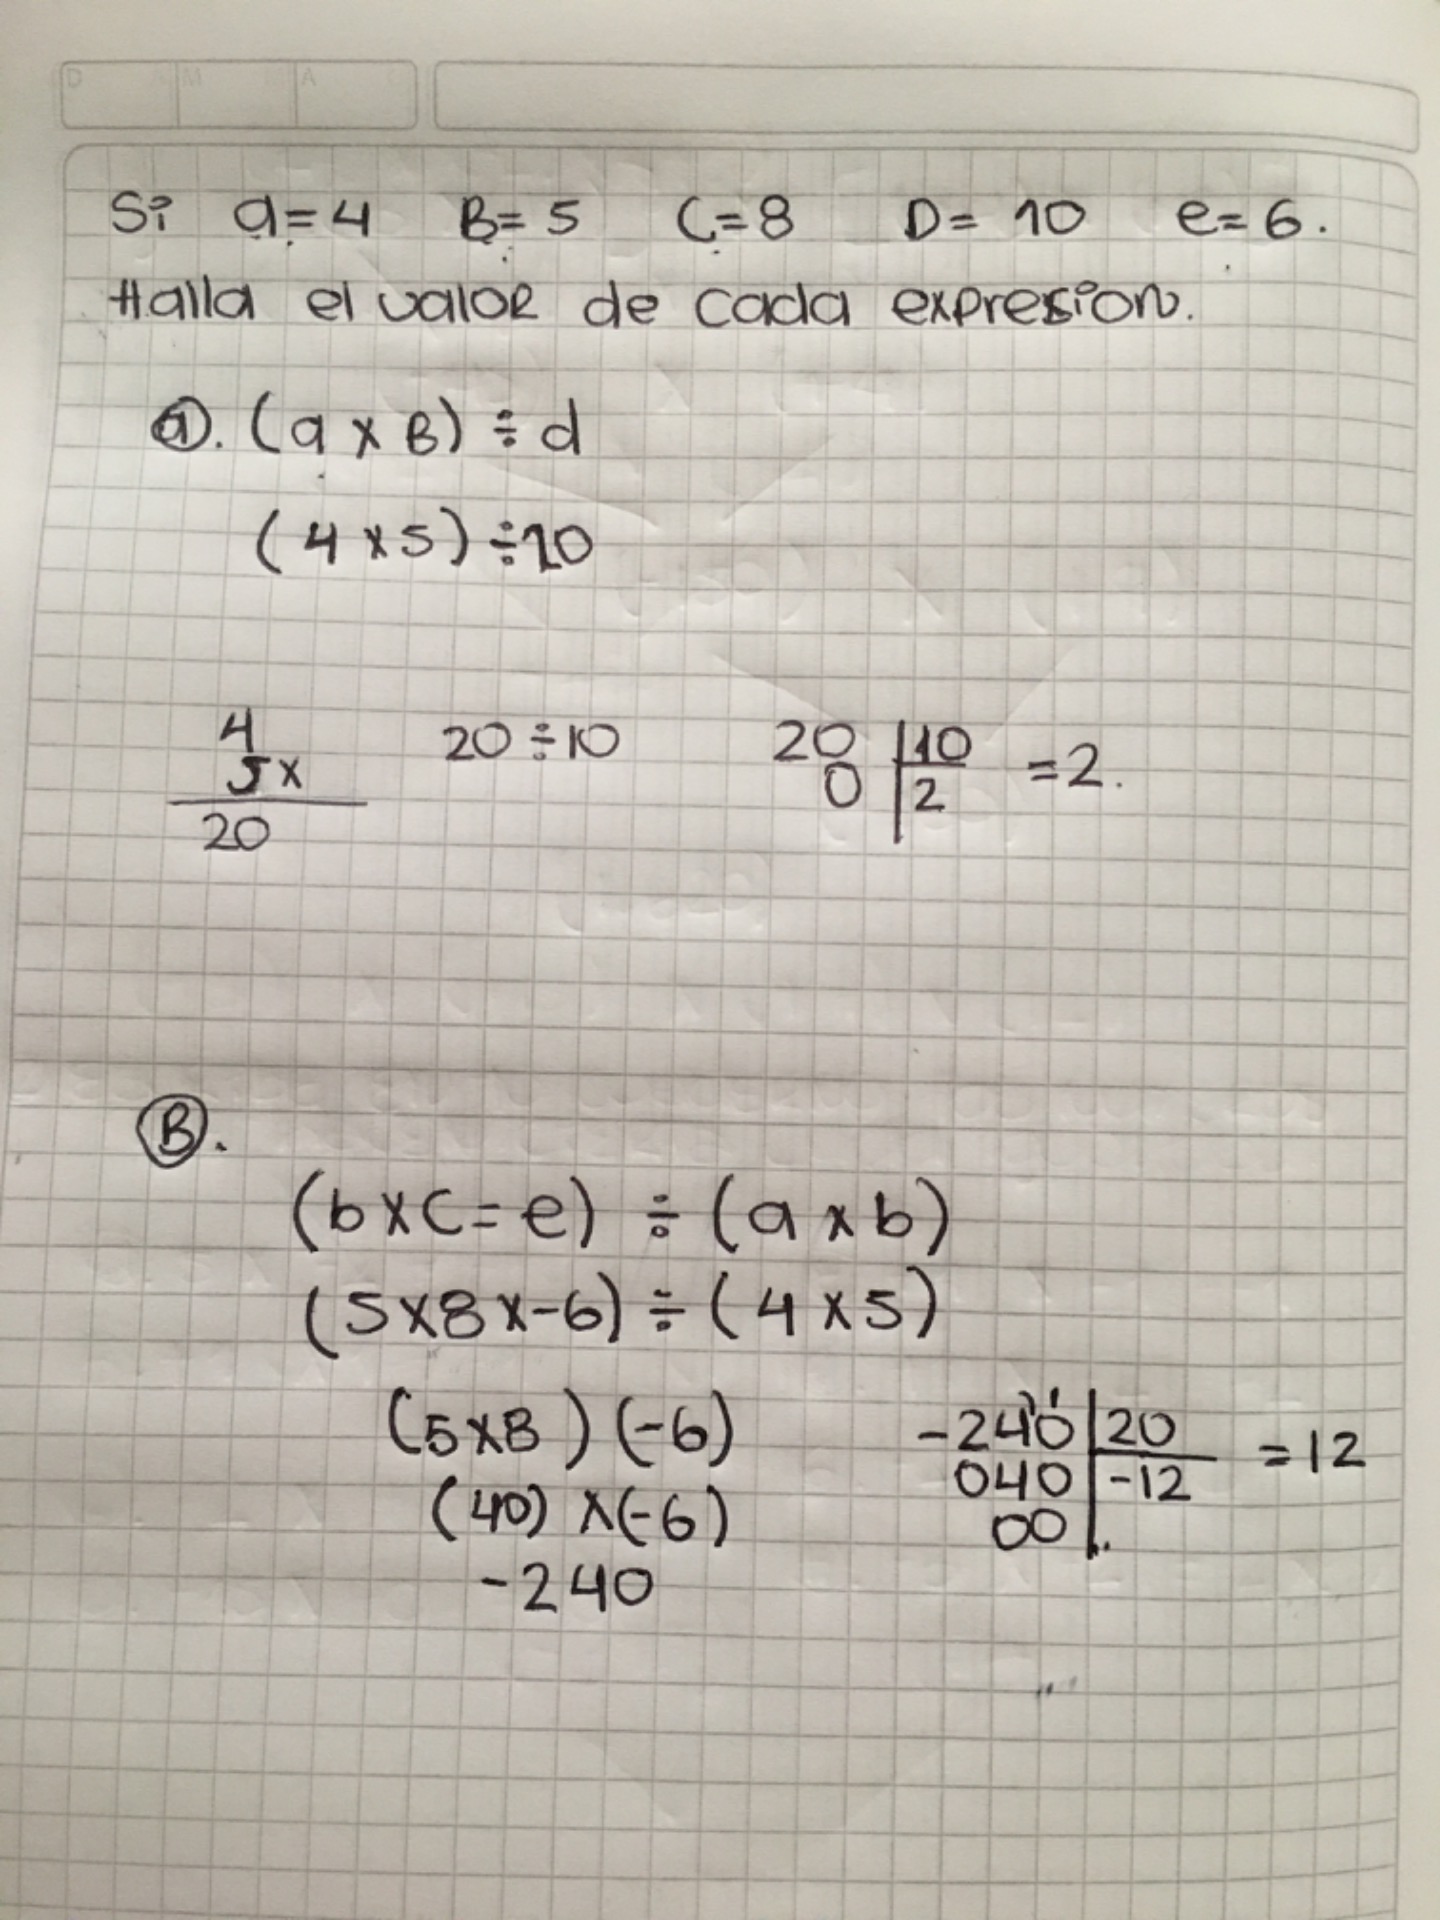 D M A
Si a=4 B=5 C=8 D=10 e=6.
Halla el valor de cada expresion.
a. (a x B) ÷ d
(4 x 5) ÷ 10
4
5x
20
20 ÷ 10
20 | 10
0 | 2
=2.
B.
(b x C = e) ÷ (a x b)
(5 x 8 x -6) ÷ (4 x 5)
(5x8) (-6)
(40) x (-6)
-240
-240 | 20
040 | -12
00 | .
=12